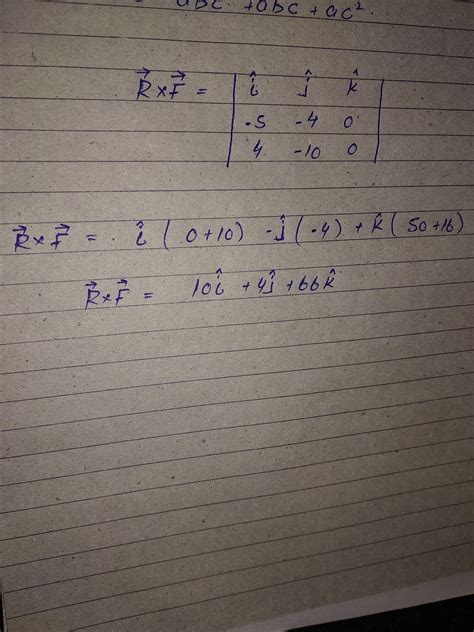 abc + abc + ac².
R⃗×F⃗ = | î ĵ k̂ |
| -5 -4 0 |
| 4 -10 0 |
R⃗×F⃗ = î ( 0+10) -ĵ ( -4) + k̂ ( 50+16)
R⃗×F⃗ = 10î +4ĵ +66k̂